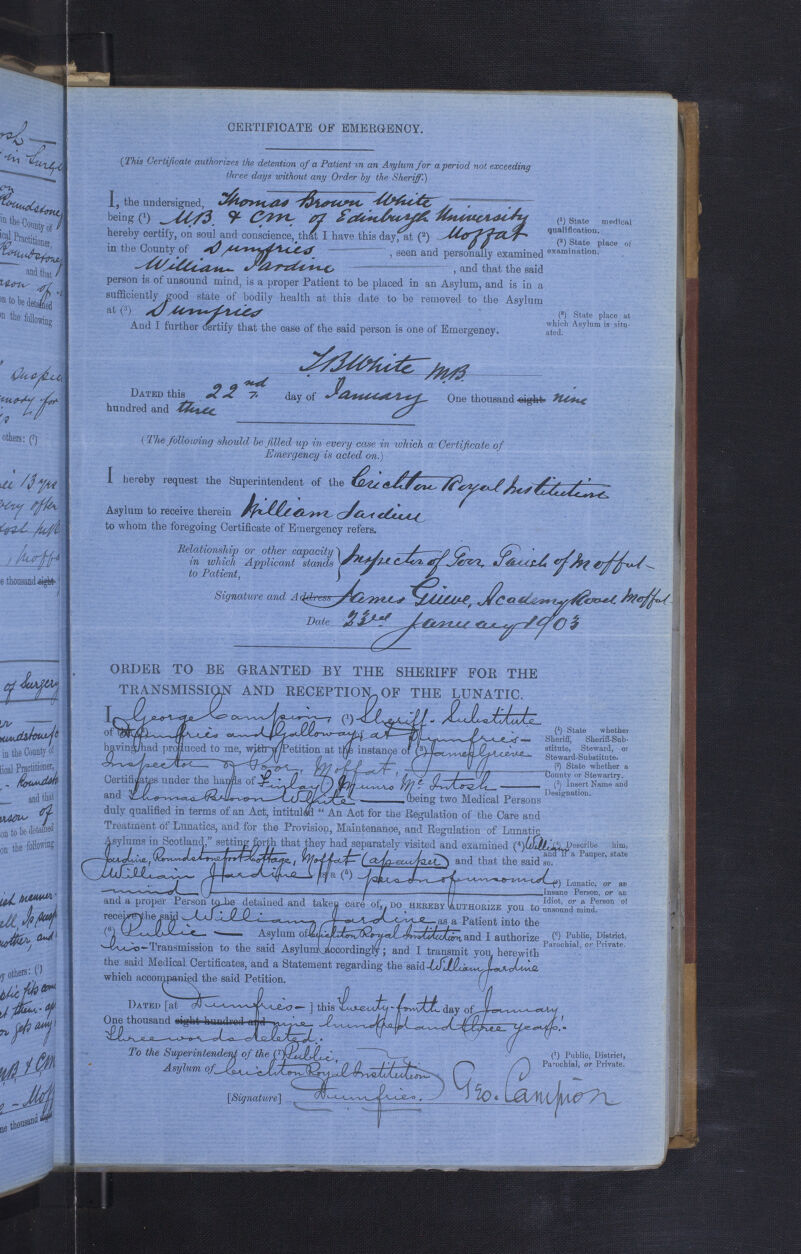 CERTIFICATE OF EMERGENCY.
(This Certificate authorizes the detention of a Patient in an Asylum for a period not exceeding
three days without any Order by the Sheriff.)
I, the undersigned, Thomas Brown White
being (¹) M.B. & C.M. of Edinburgh University
hereby certify, on soul and conscience, that I have this day, at (²) Moffat
in the County of Dumfries, seen and personally examined
William Jardine, and that the said
person is of unsound mind, is a proper Patient to be placed in an Asylum, and is in a
sufficiently good state of bodily health at this date to be removed to the Asylum
at (³) Dumfries
And I further certify that the case of the said person is one of Emergency.
(¹) State medical
qualification.
(²) State place of
examination.
(³) State place at
which Asylum is situ-
ated.
T.B. White M.B.
DATED this 22nd day of January One thousand eight nine
hundred and three
(The following should be filled up in every case in which a Certificate of
Emergency is acted on.)
I hereby request the Superintendent of the Crichton Royal Institution
Asylum to receive therein William Jardine
to whom the foregoing Certificate of Emergency refers.
Relationship or other capacity
in which Applicant stands
to Patient,
Inspector of Poor, Parish of Moffat
Signature and Address James Grieve, Academy Road Moffat
Date 23rd January 1903
ORDER TO BE GRANTED BY THE SHERIFF FOR THE
TRANSMISSION AND RECEPTION OF THE LUNATIC.
I, George Campion, (¹) Sheriff-Substitute
of Dumfries and Galloway, at Dumfries
having had produced to me, with a Petition at the instance of (³) James Grieve
Inspector of Poor, Moffat,
Certificates under the hands of Finlay Munro McIntosh
and Thomas Brown White being two Medical Persons
duly qualified in terms of an Act, intituled "An Act for the Regulation of the Care and
Treatment of Lunatics, and for the Provision, Maintenance, and Regulation of Lunatic
Asylums in Scotland," setting forth that they had separately visited and examined (⁴) William
Jardine, Roundstonefoot Cottage, Moffat (a pauper) and that the said
William Jardine is a (⁵) person of unsound
mind
and a proper Person to be detained and taken care of, DO HEREBY AUTHORIZE you to
receive the said William Jardine as a Patient into the
(⁶) Public Asylum of Crichton Royal Institution and I authorize
his Transmission to the said Asylum accordingly; and I transmit you herewith
the said Medical Certificates, and a Statement regarding the said William Jardine
which accompanied the said Petition.
(¹) State whether
Sheriff, Sheriff-Sub-
stitute, Steward, or
Steward-Substitute.
(²) State whether a
County or Stewartry.
(³) Insert Name and
Designation.
(⁴) Describe him,
and if a Pauper, state
so.
(⁵) Lunatic, or an
Insane Person, or an
Idiot, or a Person of
unsound mind.
(⁶) Public, District,
Parochial, or Private.
DATED [at Dumfries ] this Twenty-fourth day of January,
One thousand eight hundred and nine hundred and three years.
Three words deleted.
To the Superintendent of the (⁷) Public
Asylum of Crichton Royal Institution
Dumfries.
(⁷) Public, District,
Parochial, or Private.
[Signature] Geo. Campion